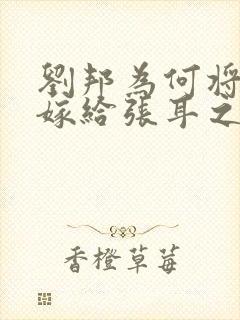 劉邦為何將
嫁給張耳之
香橙草莓